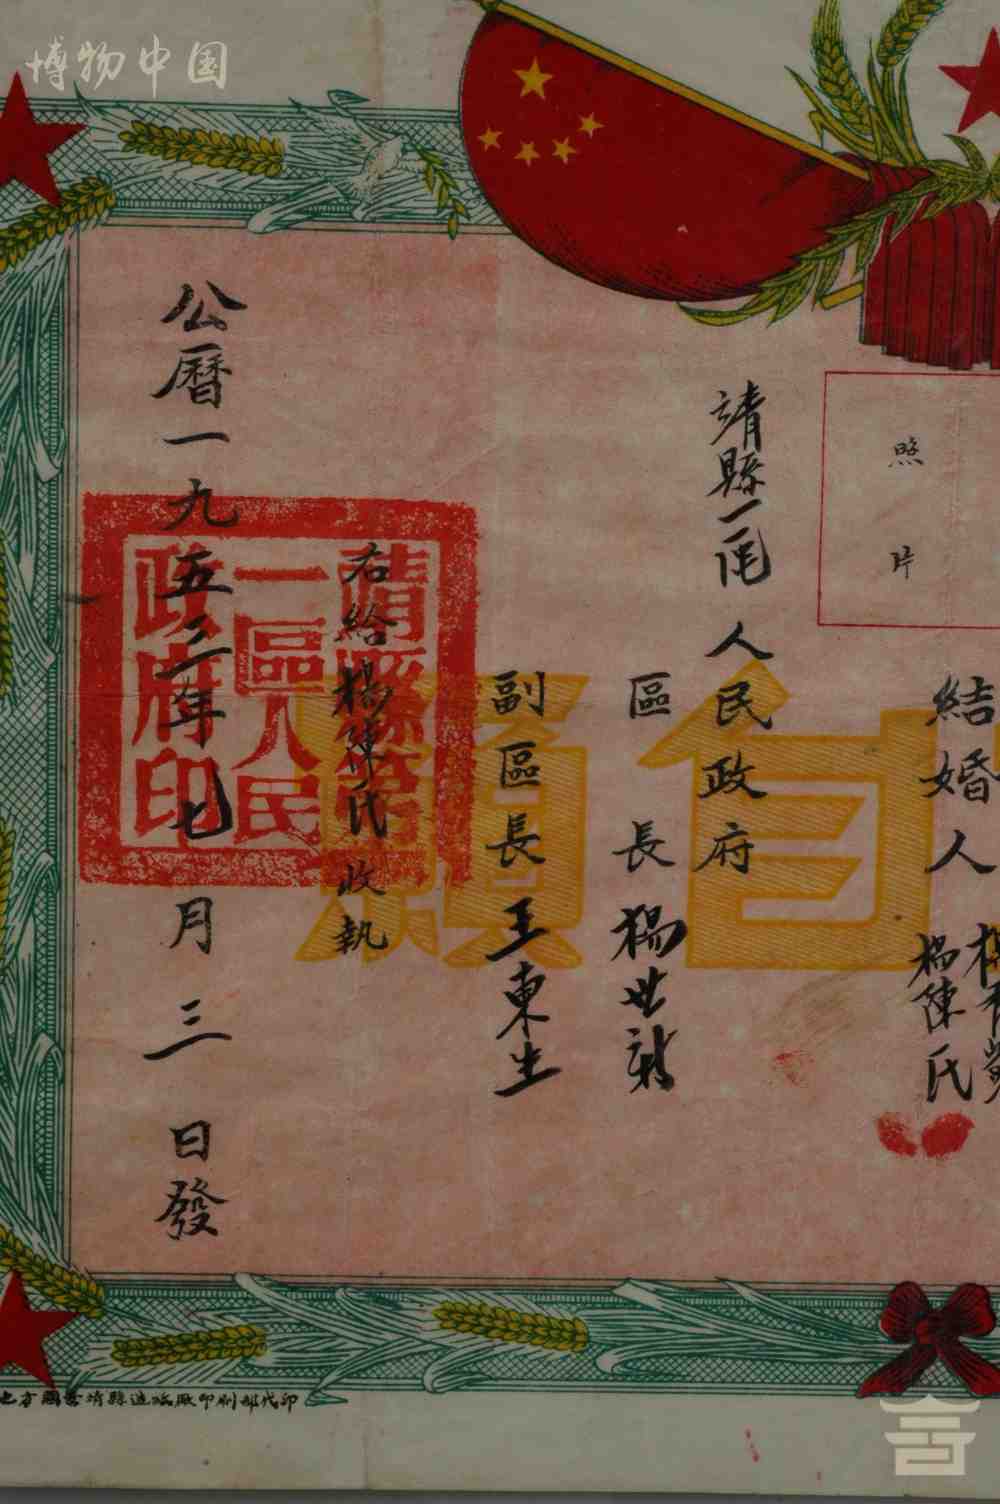 博物中国
照片
結婚人 楊陳氏
靖縣一區人民政府
區長 楊世新
副區長 王東生
自願
靖縣第一區人民政府印
右給楊陳氏收執
公曆一九五三年七月三日發
地方國營靖縣造紙厰印刷部代印